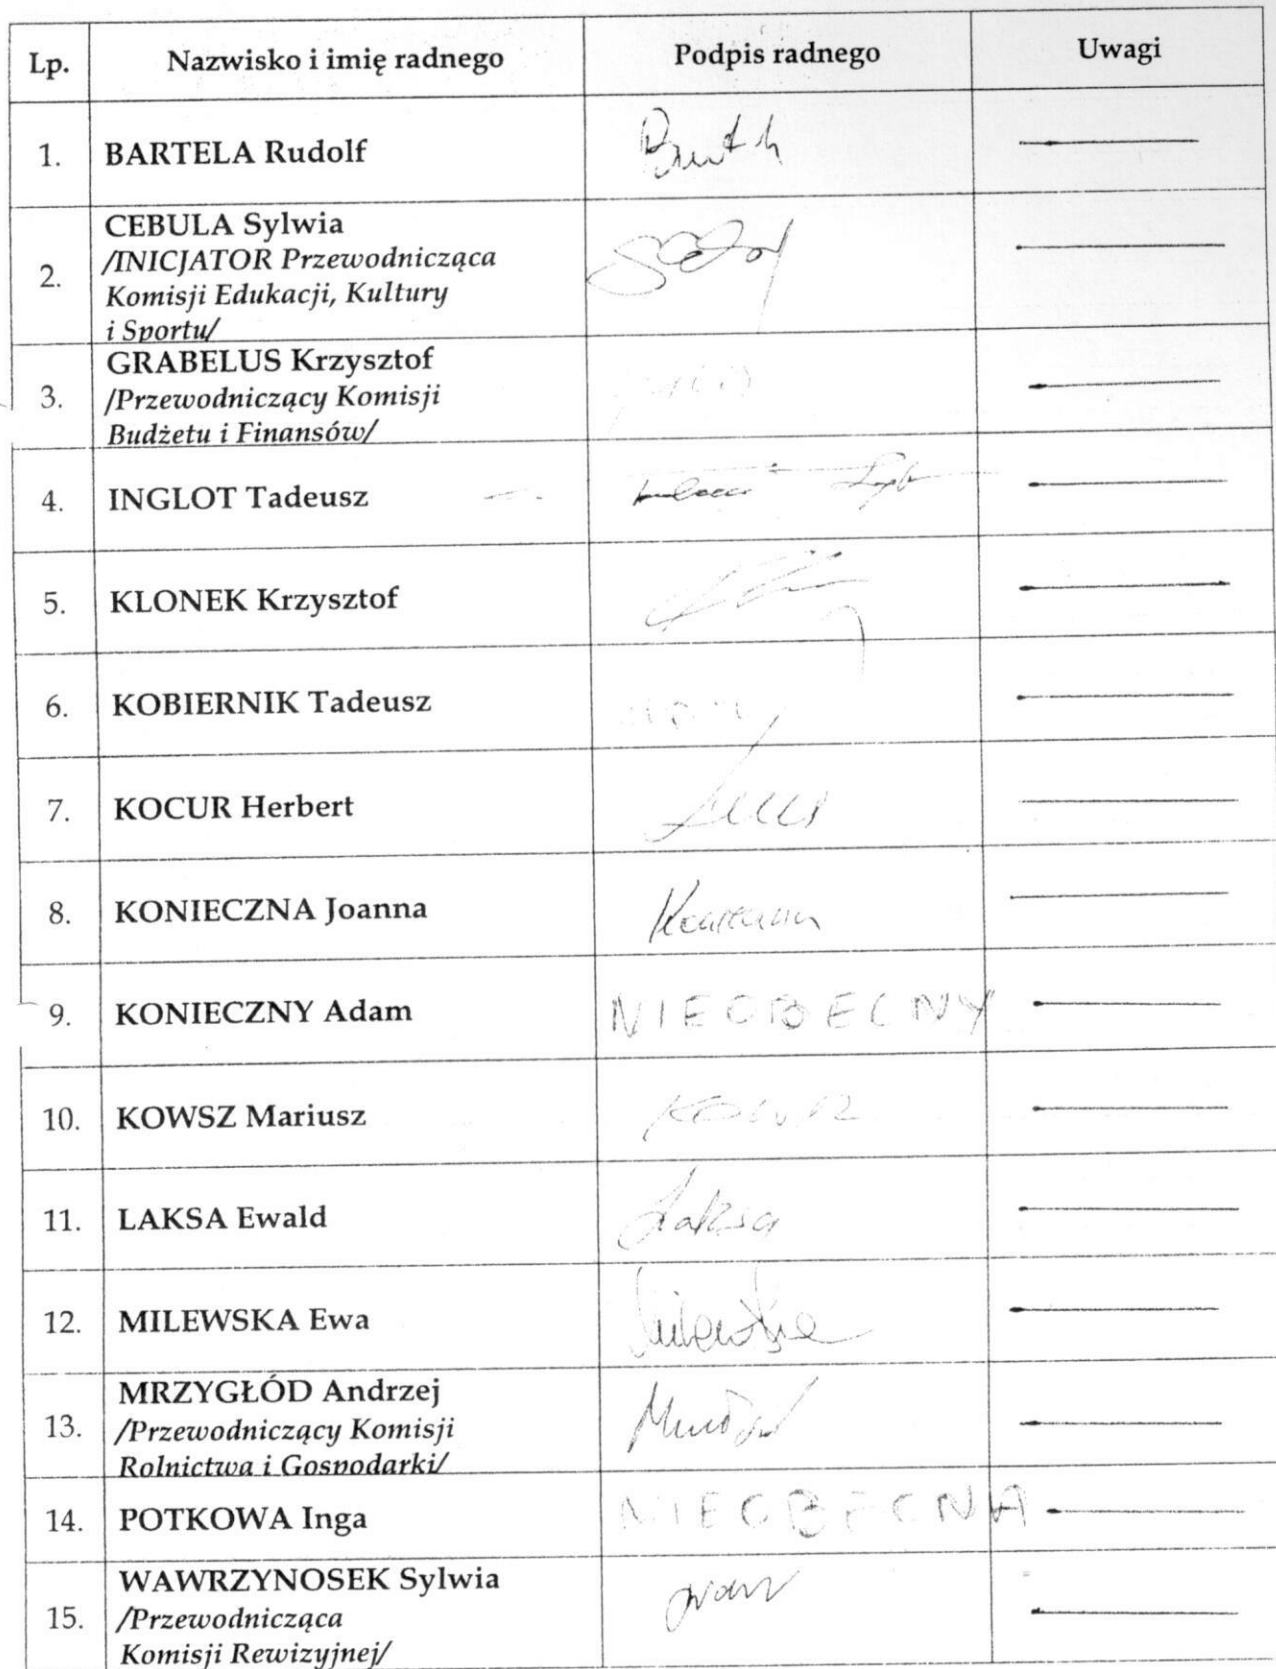 Lp. Nazwisko i imię radnego Podpis radnego Uwagi
1. BARTELA Rudolf
CEBULA Sylwia
/INICJATOR Przewodnicząca
2. Komisji Edukacji, Kultury
i Sportu/
GRABELUS Krzysztof
3. /Przewodniczący Komisji
Budżetu i Finansów/
4. INGLOT Tadeusz
5. KLONEK Krzysztof
6. KOBIERNIK Tadeusz
7. KOCUR Herbert
8. KONIECZNA Joanna
9. KONIECZNY Adam NIEOBECNY
10. KOWSZ Mariusz
11. LAKSA Ewald Laksa
12. MILEWSKA Ewa Milewska
MRZYGŁÓD Andrzej
13. /Przewodniczący Komisji
Rolnictwa i Gospodarki/
14. POTKOWA Inga NIEOBECNA
WAWRZYNOSEK Sylwia
15. /Przewodnicząca
Komisji Rewizyjnej/